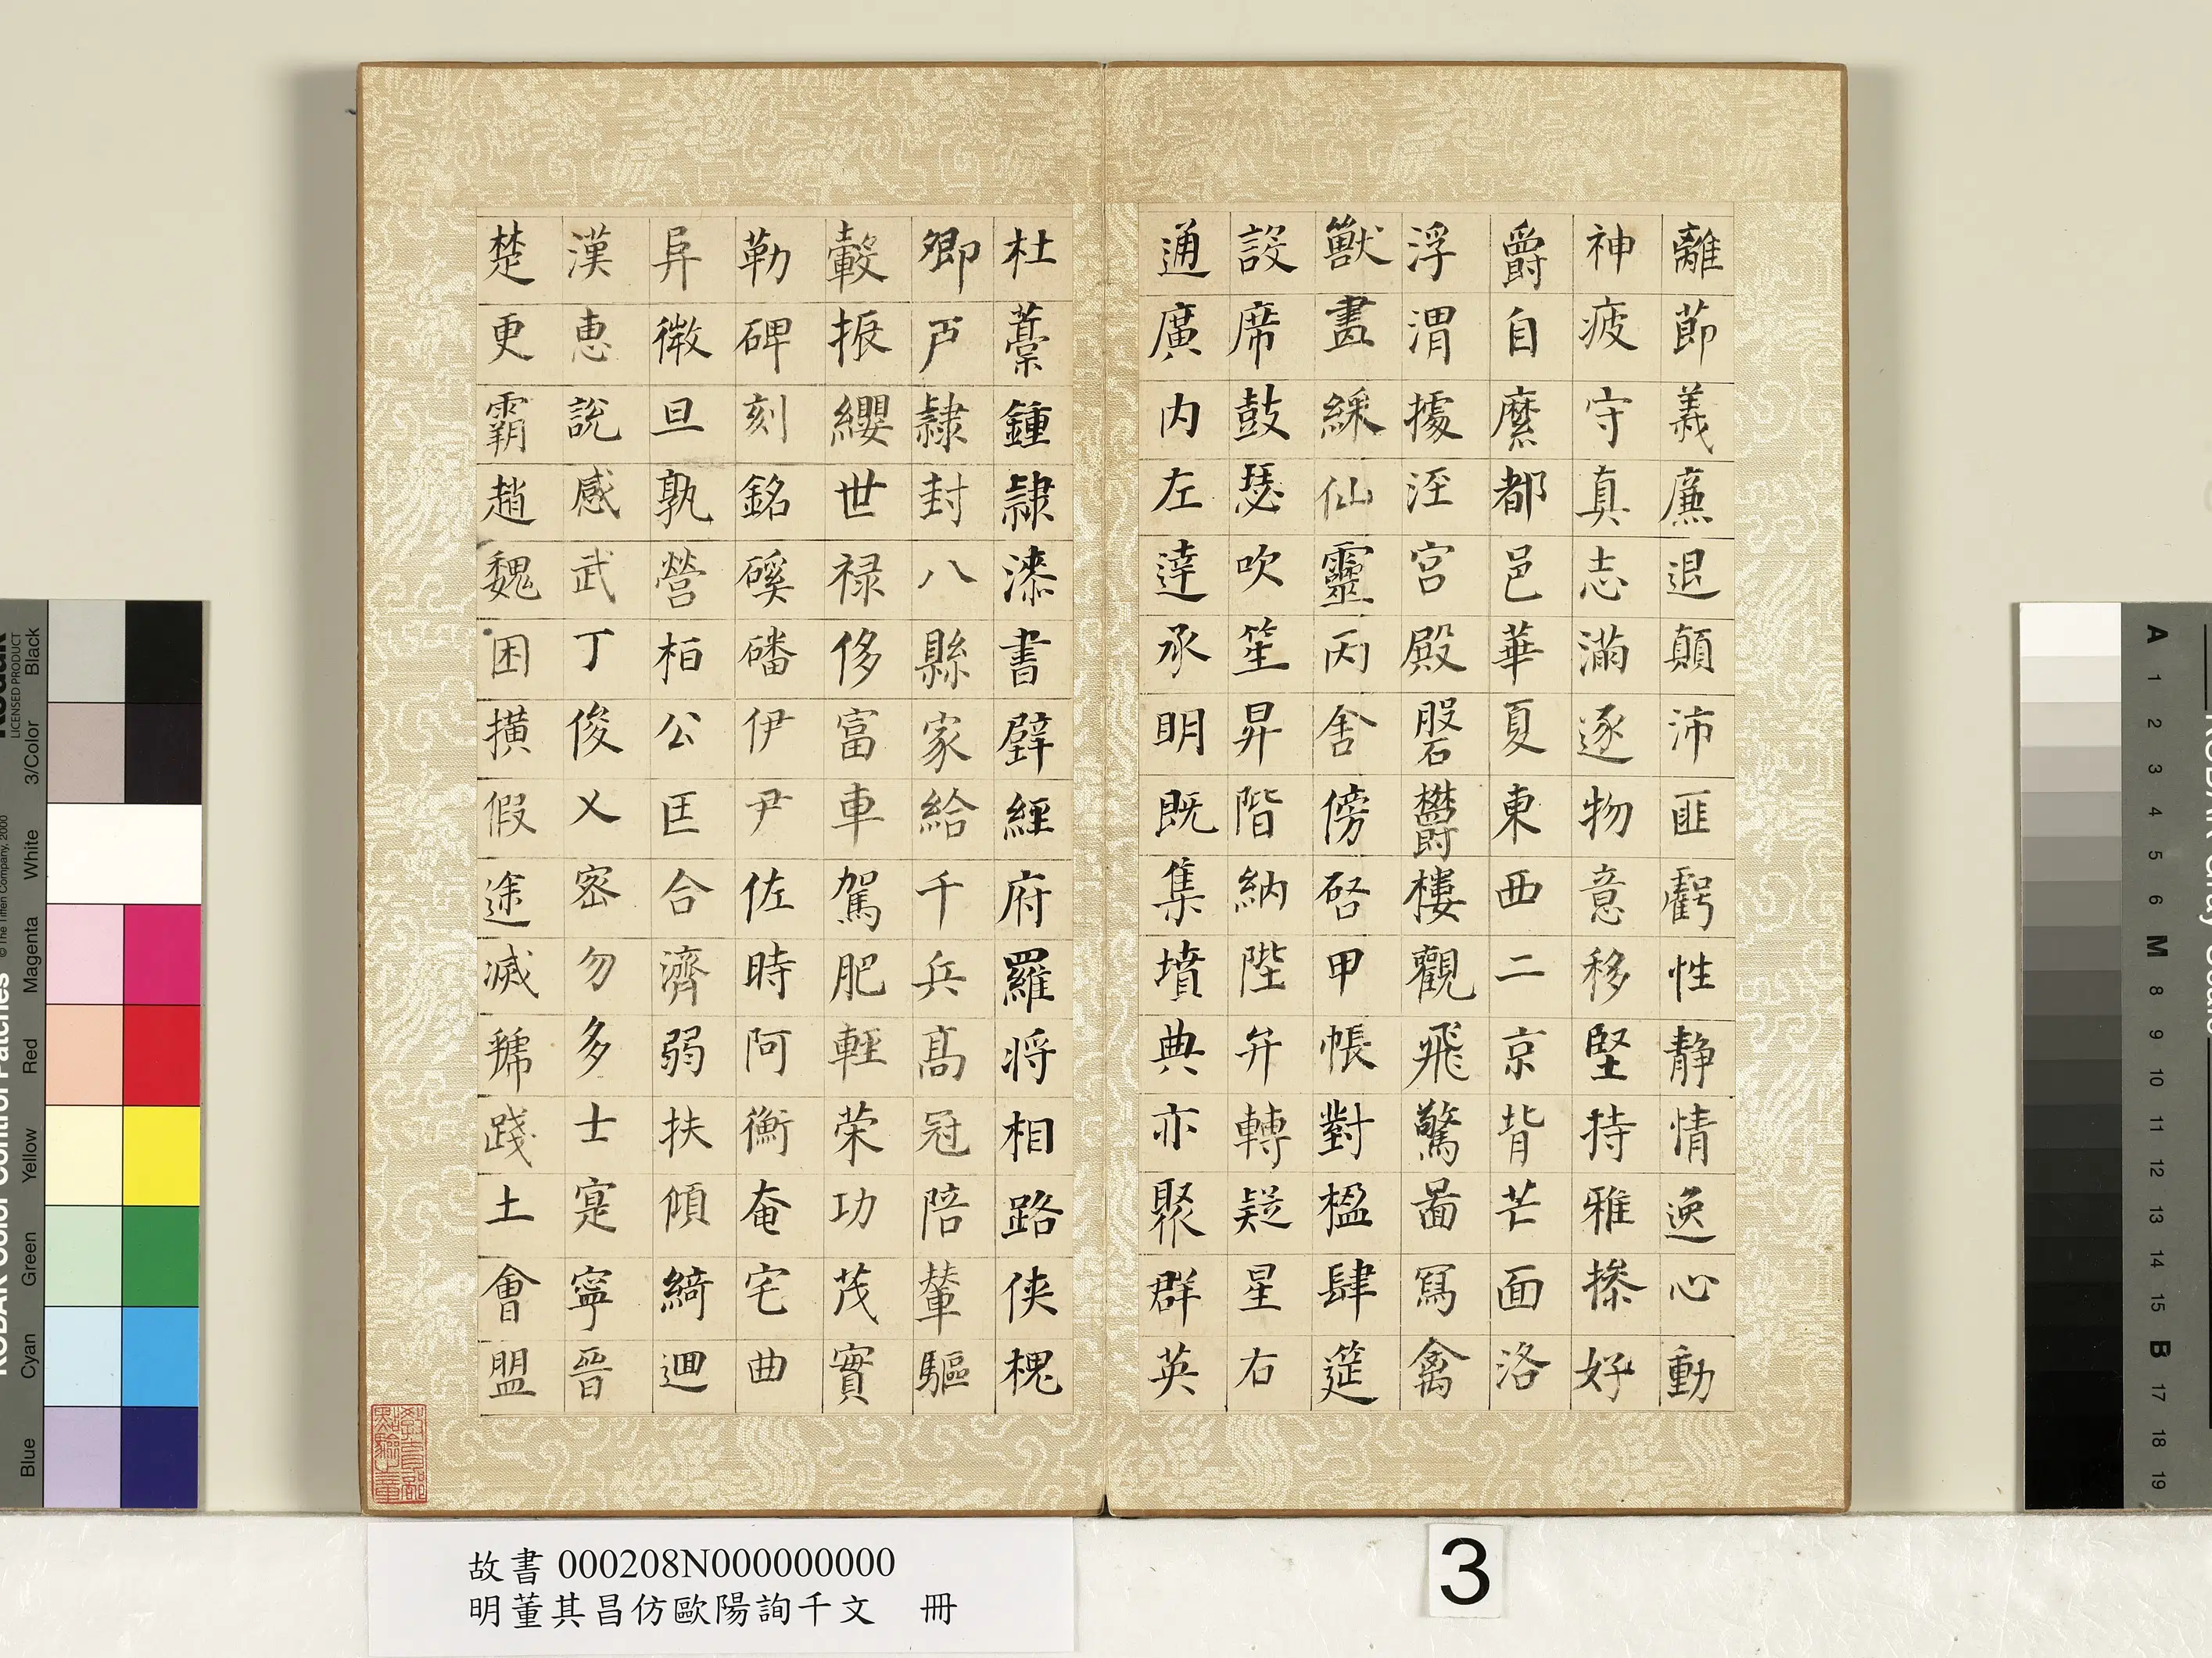 離節義廉退顛沛匪虧性静情逸心動
神疲守真志滿逐物意移堅持雅操好
爵自縻都邑華夏東西二京背芒面洛
浮渭據涇宮殿磐鬱樓觀飛驚圖寫禽
獸畫綵仙靈丙舍傍啓甲帳對楹肆筵
設席鼓瑟吹笙昇階納陛弁轉疑星右
通廣内左達承明既集墳典亦聚群英
杜藁鍾隸漆書壁經府羅将相路侠槐
卿戶隸封八縣家給千兵高冠陪輦驅
轂振纓世禄侈富車駕肥輕荣功茂實
勒碑刻銘磎磻伊尹佐時阿衡奄宅曲
阜微旦孰營桓公匡合濟弱扶傾綺迴
漢惠說感武丁俊乂密勿多士寔寧晉
楚更霸趙魏困橫假途滅虢踐土會盟
教育部點驗之章
故書 000208N000000000
明董其昌仿歐陽詢千文 冊
3
KODAK Color Control Patches
© The Tiffen Company, 2000
Kodak
LICENSED PRODUCT
Blue
Cyan
Green
Yellow
Red
Magenta
White
3/Color
Black
KODAK Gray Scale
A 1 2 3 4 5 6 M 8 9 10 11 12 13 14 15 B 17 18 19